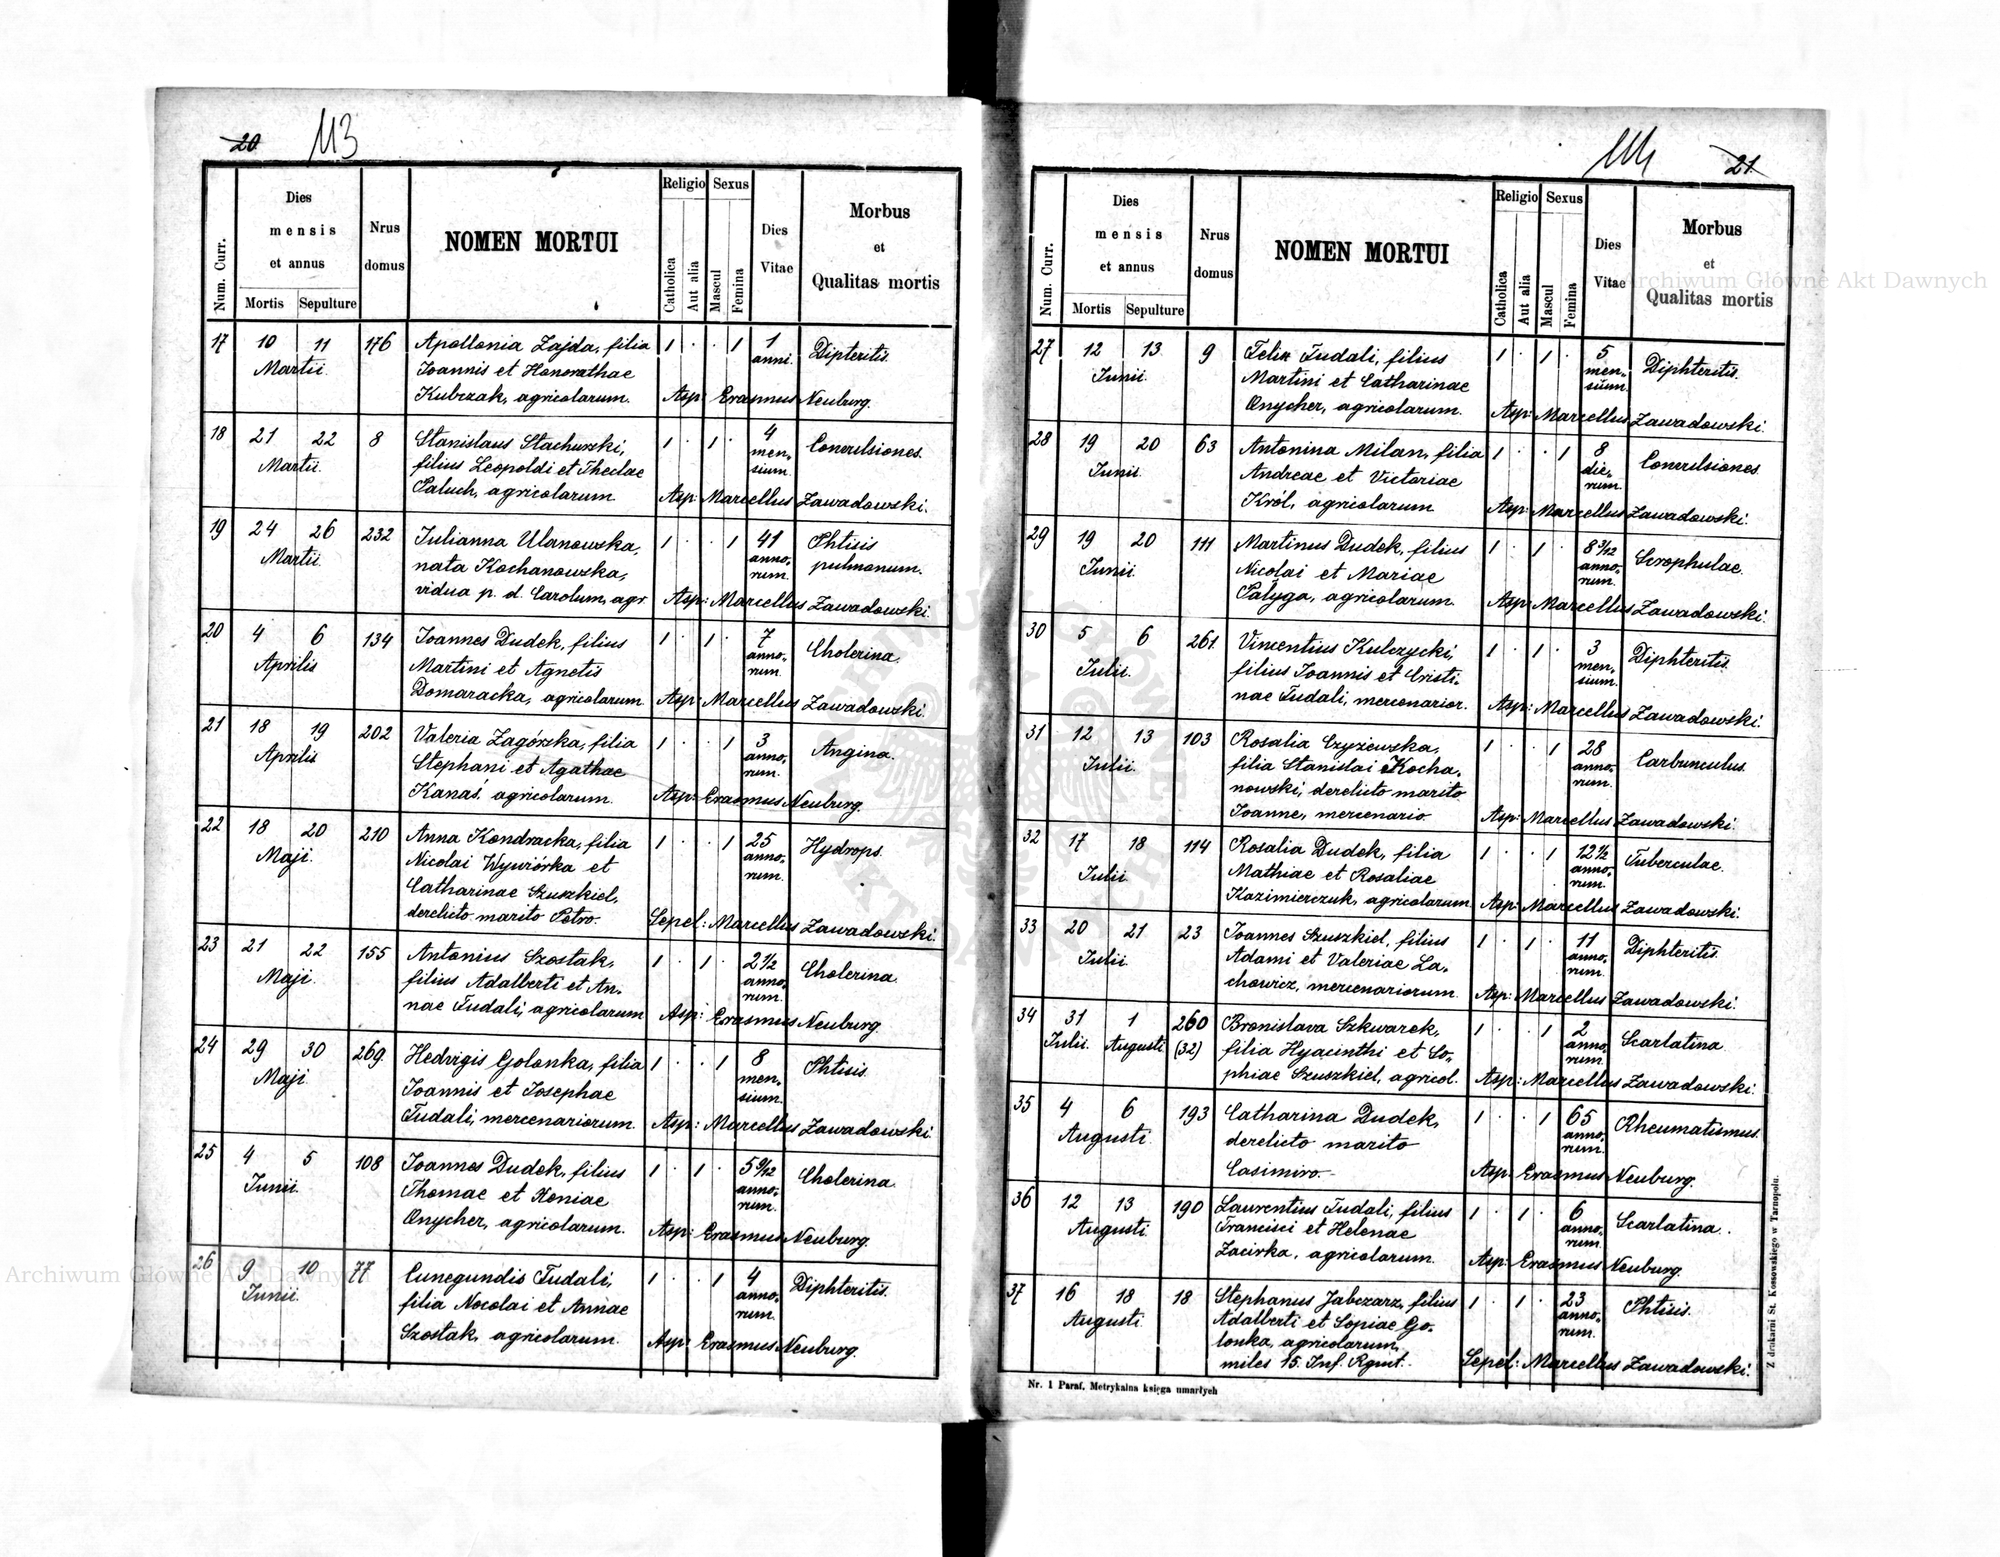 20 113
Num. Curr.
Dies mensis et annus
Mortis Sepulture
Nrus domus
NOMEN MORTUI
Religio Sexus
Catholica Aut alia Mascul Femina
Dies Vitae
Morbus et Qualitas mortis
17 10 11 176 Apollonia Zajda, filia 1 . . 1 1 Dipteritis.
Martii. Joannis et Honorathae anni.
Kubczak, agricolarum. Asp: Erasmus Neuburg.
18 21 22 8 Stanislaus Stachurski, 1 . 1 . 4 Convulsiones.
Martii. filius Leopoldi et Theclae men-
Paluch, agricolarum sium. Asp: Marcellus Zawadowski.
19 24 26 232 Julianna Ulanowska, 1 . . 1 41 Phtisis
Martii. nata Kochanowska, anno- pulmonum.
vidua p. d. Carolum, agr. rum. Asp: Marcellus Zawadowski.
20 4 6 134 Joannes Dudek, filius 1 . 1 . 7 Cholerina.
Aprilis Martini et Agnetis anno-
Domaracka, agricolarum. rum. Asp: Marcellus Zawadowski.
21 18 19 202 Valeria Zagórska, filia 1 . . 1 3 Angina.
Aprilis Stephani et Agathae anno-
Kanas, agricolarum. rum. Asp: Erasmus Neuburg.
22 18 20 210 Anna Kondracka, filia 1 . . 1 25 Hydrops.
Maji. Nicolai Wywiórka et anno-
Catharinae Szuszkiel, rum.
derelicto marito Petro. Sepel: Marcellus Zawadowski.
23 21 22 155 Antonius Szostak, 1 . 1 . 2 1/2 Cholerina.
Maji. filius Adalberti et An- anno-
nae Fudali, agricolarum rum. Asp: Erasmus Neuburg.
24 29 30 269. Hedvigis Golonka, filia 1 . . 1 8 Phtisis.
Maji. Joannis et Josephae men-
Fudali, mercenariorum. sium. Asp: Marcellus Zawadowski.
25 4 5 108 Joannes Dudek, filius 1 . 1 . 5 9/12 Cholerina.
Junii. Thomae et Xeniae anno-
Onycher, agricolarum. rum. Asp: Erasmus Neuburg.
26 9 10 77 Cunegundis Fudali, 1 . . 1 4 Diphteritis.
Junii. filia Nocolai et Annae anno-
Szostak, agricolarum. rum. Asp: Erasmus Neuburg.
114 21.
Num. Curr.
Dies mensis et annus
Mortis Sepulture
Nrus domus
NOMEN MORTUI
Religio Sexus
Catholica Aut alia Mascul Femina
Dies Vitae
Morbus et Qualitas mortis
27 12 13 9 Felix Fudali, filius 1 . 1 . 5 Diphteritis.
Junii. Martini et Catharinae men-
Onycher, agricolarum. sium. Asp: Marcellus Zawadowski.
28 19 20 63 Antonina Milan, filia 1 . . 1 8 Convulsiones.
Junii. Andreae et Victoriae die-
Król, agricolarum rum. Asp: Marcellus Zawadowski.
29 19 20 111 Martinus Dudek, filius 1 . 1 . 8 3/12 Scrophulae.
Junii. Nicolai et Mariae anno-
Pałyga, agricolarum. rum. Asp: Marcellus Zawadowski.
30 5 6 261. Vincentius Kulczycki, 1 . 1 . 3 Diphteritis.
Julii. filius Joannis et Cristi- men-
nae Fudali, mercenarior. sium. Asp: Marcellus Zawadowski.
31 12 13 103 Rosalia Czyżewska, 1 . . 1 28 Carbunculus.
Julii. filia Stanislai Kocha- anno-
nowski, derelicto marito rum.
Joanne, mercenario Asp: Marcellus Zawadowski.
32 17 18 114 Rosalia Dudek, filia 1 . . 1 12 1/2 Tuberculae.
Julii. Mathiae et Rosaliae anno-
Kazimierczuk, agricolarum. rum. Asp: Marcellus Zawadowski.
33 20 21 23 Joannes Szuszkiel, filius 1 . 1 . 11 Diphteritis.
Julii. Adami et Valeriae La- anno-
chowicz, mercenariorum. rum. Asp: Marcellus Zawadowski.
34 31 1 260 Bronislava Szkwarek, 1 . . 1 2 Scarlatina.
Julii. Augusti (32) filia Hyacinthi et So- anno-
phiae Szuszkiel, agricol. rum. Asp: Marcellus Zawadowski.
35 4 6 193 Catharina Dudek, 1 . . 1 65 Rheumatismus.
Augusti. derelicto marito anno-
Casimiro. rum. Asp: Erasmus Neuburg.
36 12 13 190 Laurentius Fudali, filius 1 . 1 . 6 Scarlatina.
Augusti. Francisci et Helenae anno-
Zacirka, agricolarum. rum. Asp: Erasmus Neuburg.
37 16 18 18 Stephanus Jabczarz, filius 1 . 1 . 23 Phtisis.
Augusti. Adalberti et Sopiae Go- anno-
lonka, agricolarum, rum.
miles 15. Inf. Rgmt. Sepel: Marcellus Zawadowski.
Nr. 1 Paraf. Metrykalna księga umarłych
Z drukarni St. Kossowskiego w Tarnopolu.
Archiwum Główne Akt Dawnych
Archiwum Główne Akt Dawnych
ARCHIWUM GŁÓWNE AKT DAWNYCH